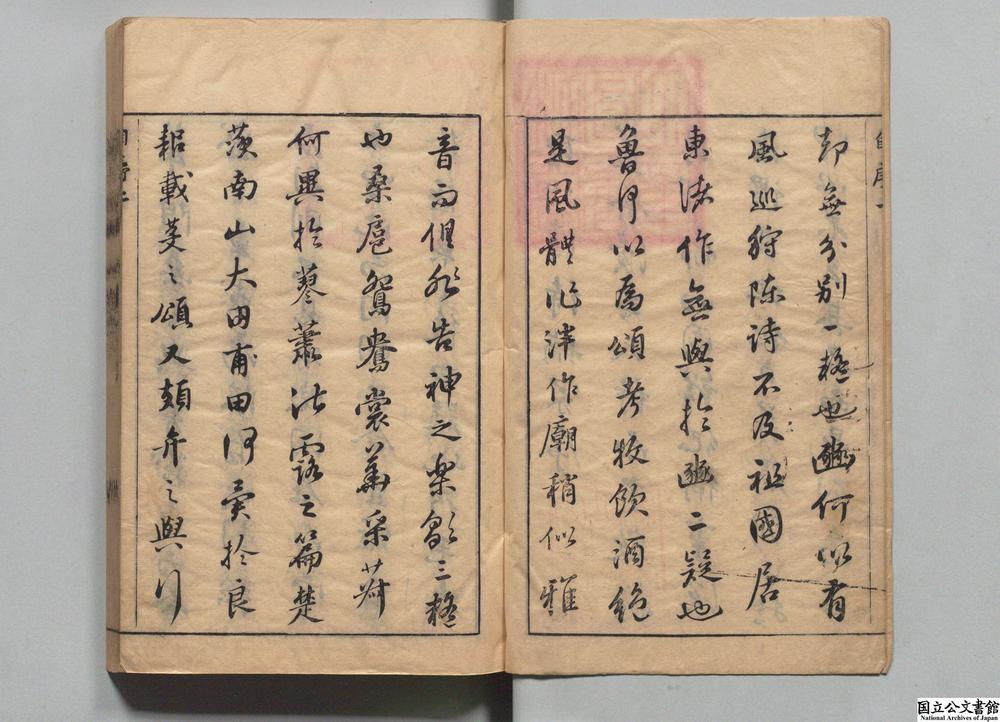 自序 一
却無分別一疑也豳何以有
風巡狩陳詩不及祖國居
東諸作無與於豳二疑也
魯何以為頌考牧飲酒絕
是風體作泮作廟稍似雅
音而俱非告神之樂歌三疑
也桑扈鴛鴦裳華采菽
何異於蓼蕭湛露之篇楚
茨南山大田甫田何異於良
耜載芟之頌又頍弁之與行
国立公文書館
National Archives of Japan